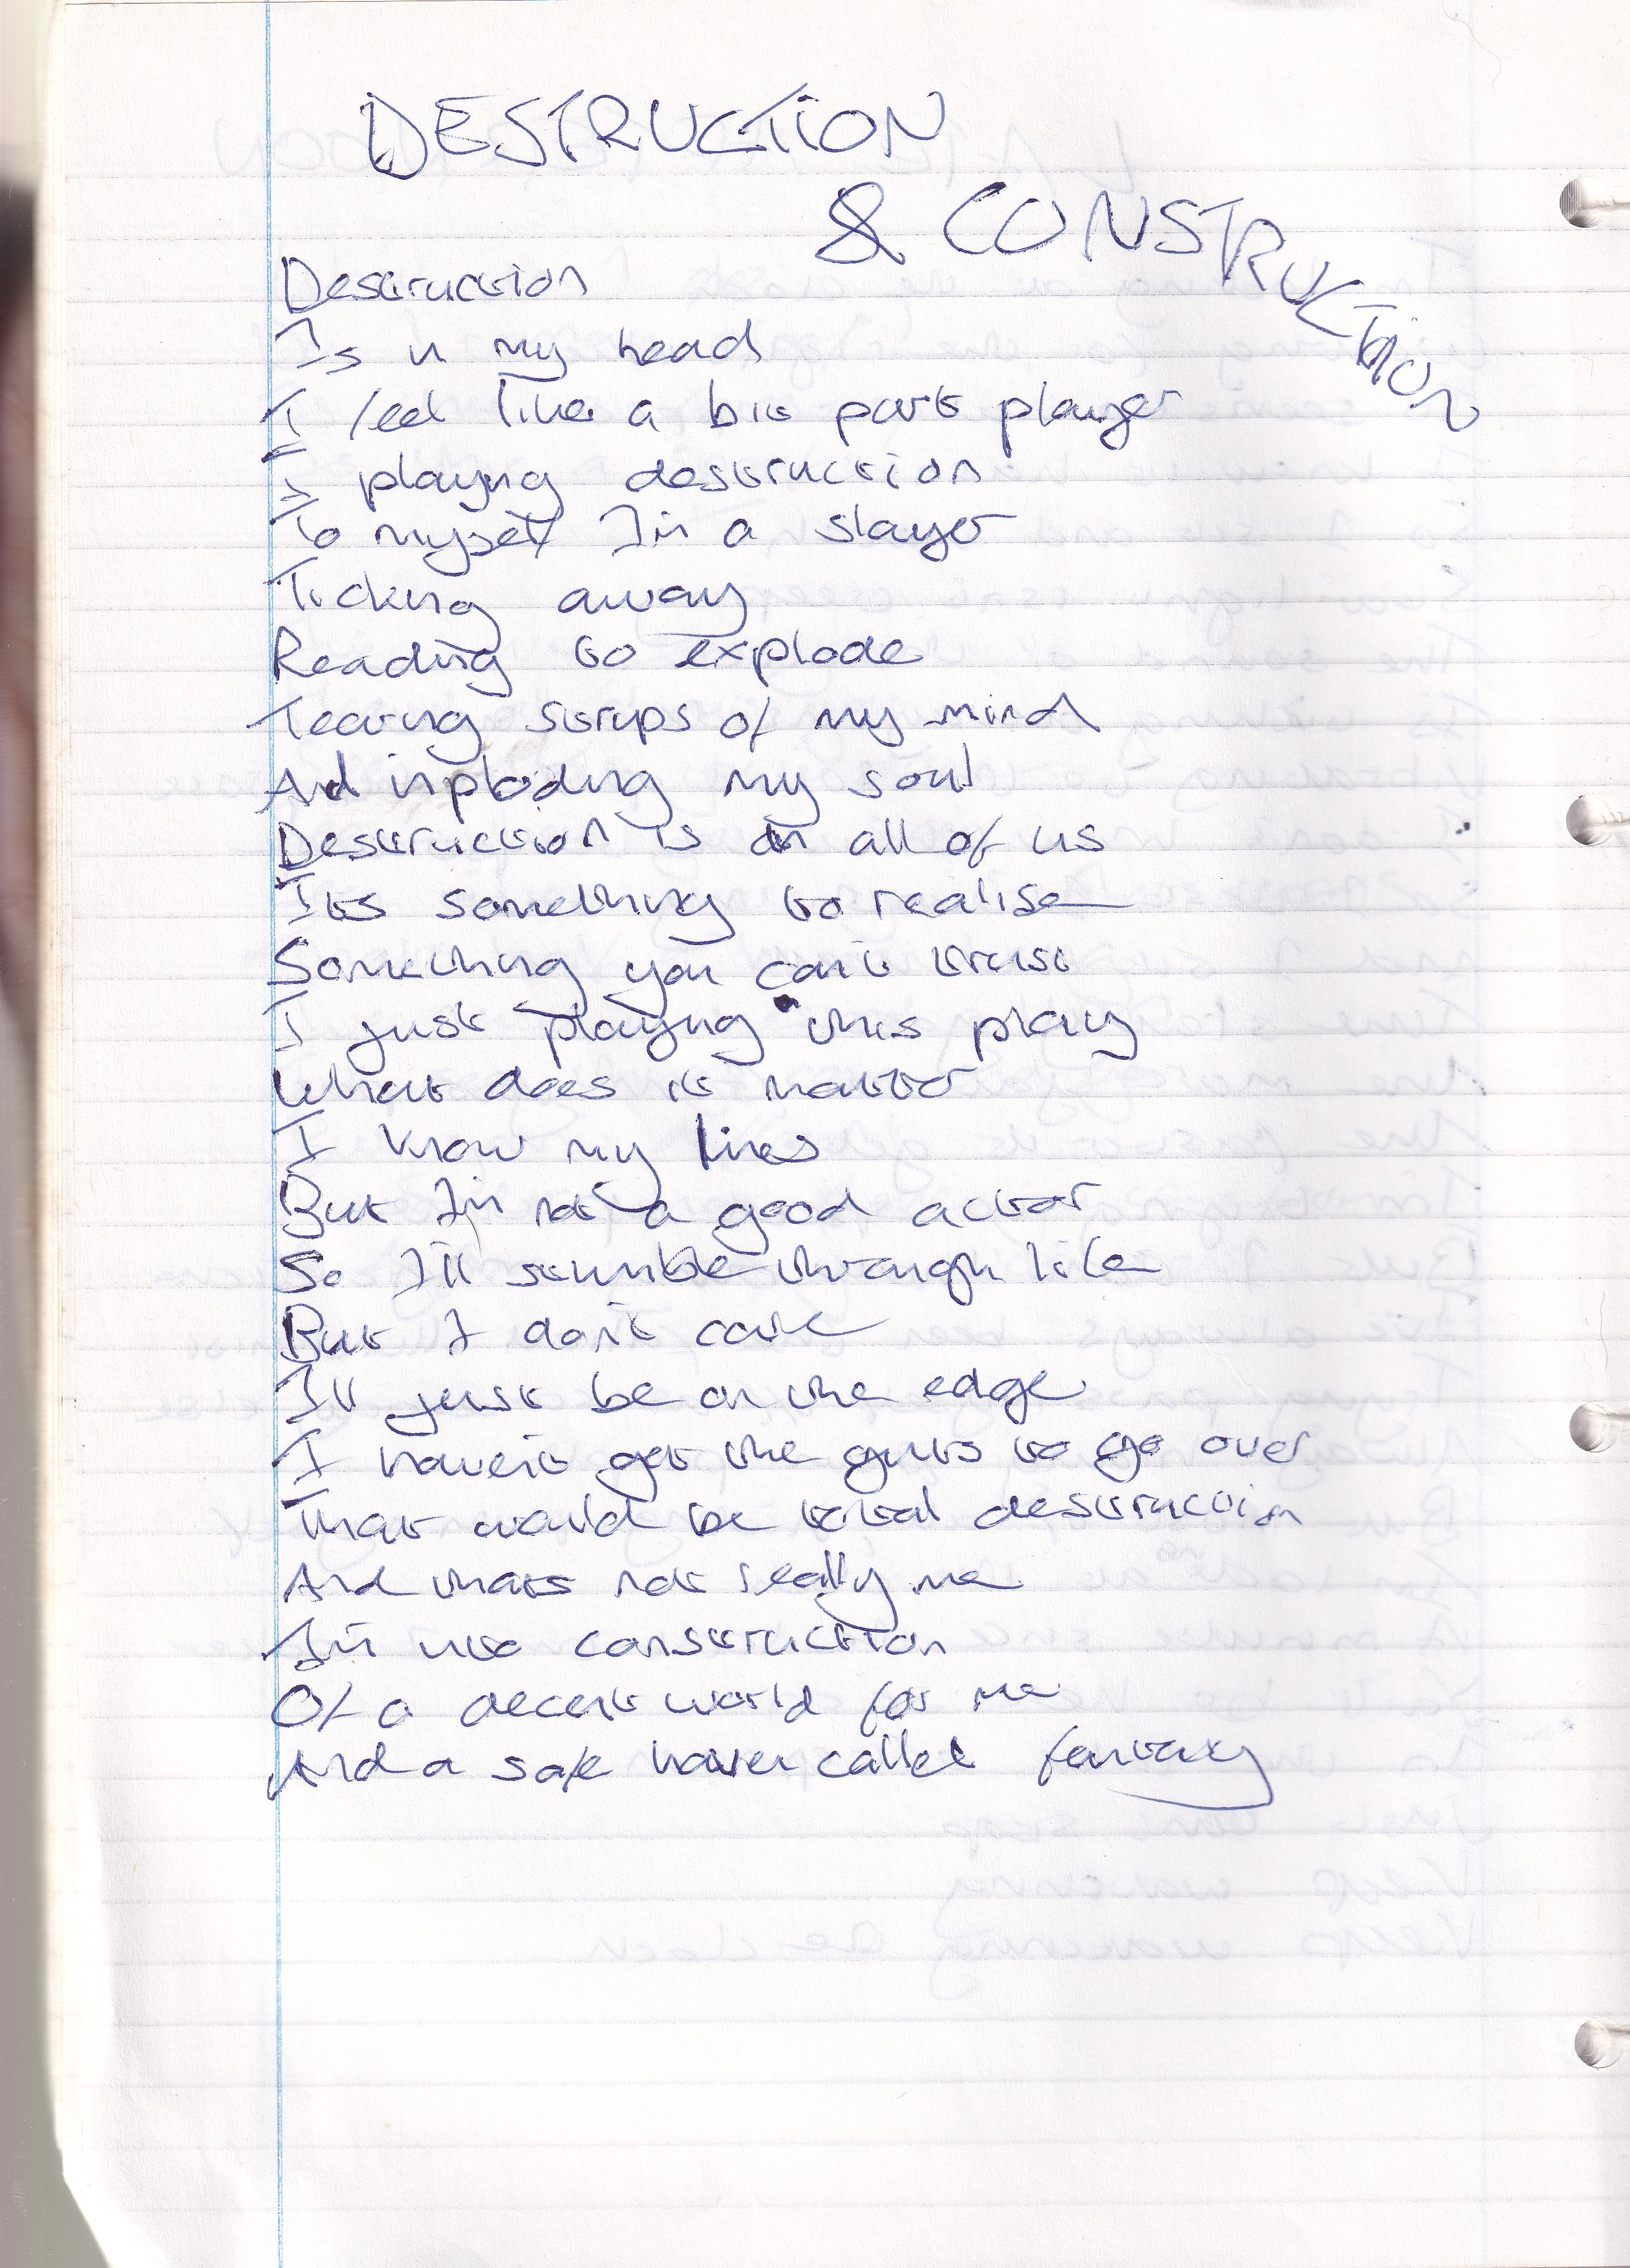 DESTRUCTION
& CONSTRUCTION
Destruction
Is in my head
I feel like a bit part player
I playing destruction
To myself I'm a slayer
Ticking away
Reading to explode
Tearing strips of my mind
And imploding my soul
Destruction is in all of us
Its something to realise
Something you can't trust
I just playing this play
What does it matter
I know my lines
But I'm not a good actor
So I'll stumble through life
But I don't care
I'll just be on the edge
I haven't got the guts to go over
That would be total destruction
And thats not really me
I'm into construction
Of a decent world for me
And a safe haven called fantasy